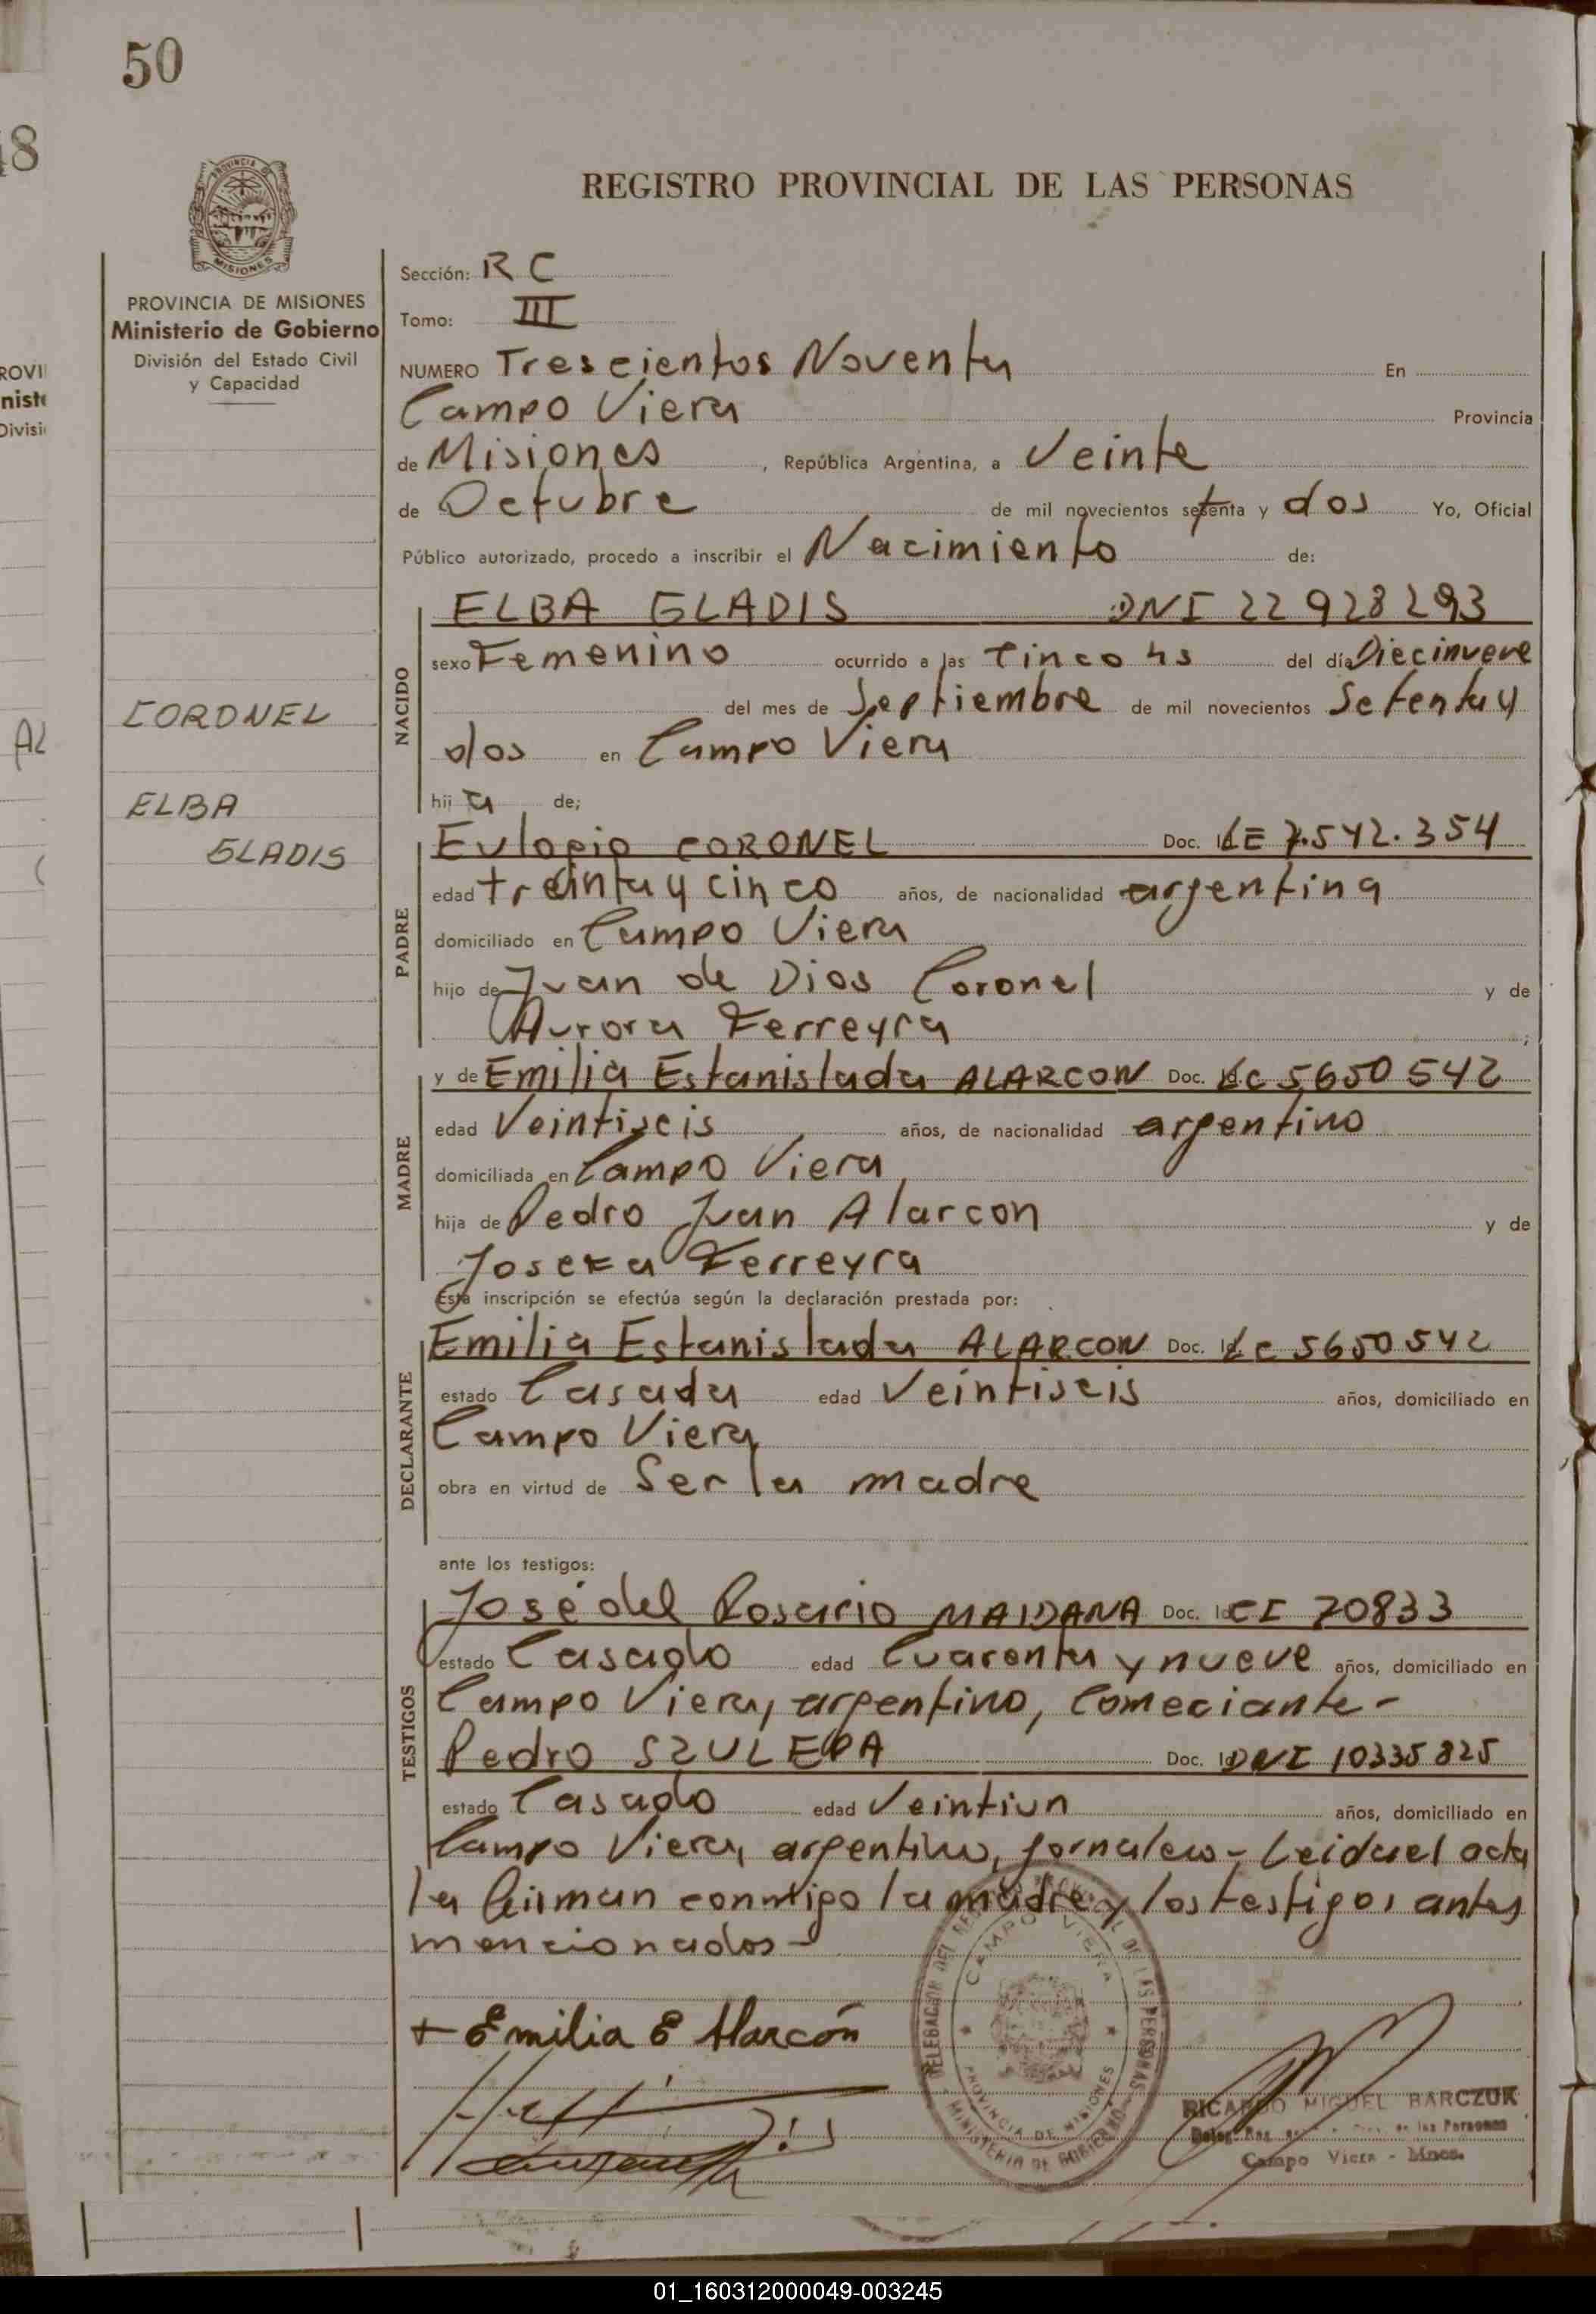 50
REGISTRO PROVINCIAL DE LAS PERSONAS
PROVINCIA DE MISIONES
Ministerio de Gobierno
División del Estado Civil
y Capacidad
CORONEL
ELBA
GLADIS
Sección: R C
Tomo: III
NUMERO Trescientos Noventa En
Campo Viera Provincia
de Misiones, República Argentina, a Veinte
de Octubre de mil novecientos setenta y dos Yo, Oficial
Público autorizado, procedo a inscribir el Nacimiento de:
NACIDO
ELBA GLADIS DNI 22 928 293
sexo Femenino ocurrido a las Cinco hs del día Diecinueve
del mes de Septiembre de mil novecientos Setenta y
dos en Campo Viera
hij a de;
PADRE
Eulogio CORONEL Doc. Id LE 7.542.354
edad treinta y cinco años, de nacionalidad argentina
domiciliado en Campo Viera
hijo de Juan de Dios Coronel y de
Aurora Ferreyra ;
MADRE
y de Emilia Estanislada ALARCON Doc. Id LC 5650 542
edad Veintiseis años, de nacionalidad argentino
domiciliada en Campo Viera
hija de Pedro Juan Alarcon y de
Josefa Ferreyra
Esta inscripción se efectúa según la declaración prestada por:
DECLARANTE
Emilia Estanislada ALARCON Doc. Id LC 5650542
estado Casada edad Veintiseis años, domiciliado en
Campo Viera
obra en virtud de Ser la madre
ante los testigos:
TESTIGOS
José del Rosario MAIDANA Doc. Id CI 70833
estado Casado edad Cuarenta y nueve años, domiciliado en
Campo Viera, argentino, Comeciante -
Pedro SZULEPA Doc. Id DNI 10335825
estado Casado edad Veintiun años, domiciliado en
Campo Viera, argentino, jornalero - Leida el acta
la firman conmigo la madre y los testigos antes
mencionados -
+ Emilia E Alarcón
DELEGACION DEL REGISTRO PROVINCIAL DE LAS PERSONAS
CAMPO VIERA
PROVINCIA DE MISIONES
MINISTERIO DE GOBIERNO
RICARDO MIGUEL BARCZUK
de las Personas
Campo Viera - Mnes.
01_160312000049-003245